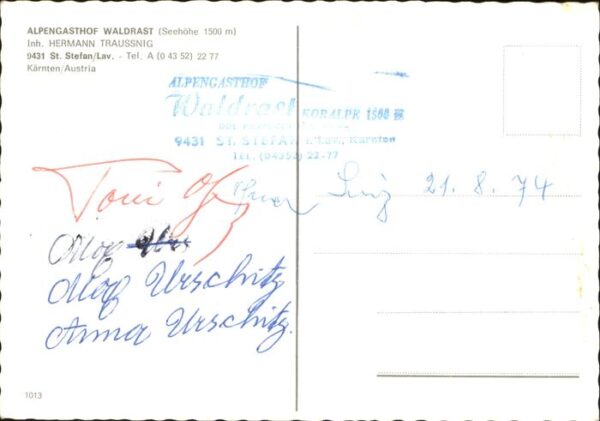 ALPENGASTHOF WALDRAST (Seehöhe 1500 m)
Inh. HERMANN TRAUSSNIG
9431 St. Stefan/Lav. - Tel. A (0 43 52) 22 77
Kärnten/Austria
ALPENGASTHOF
Waldrast KORALPE 1500 M
9431 ST. STEFAN i. Lav., Kärnten
Tel. (04352) 22-77
Toni
21. 8. 74
Urschitz
Anna Urschitz
1013